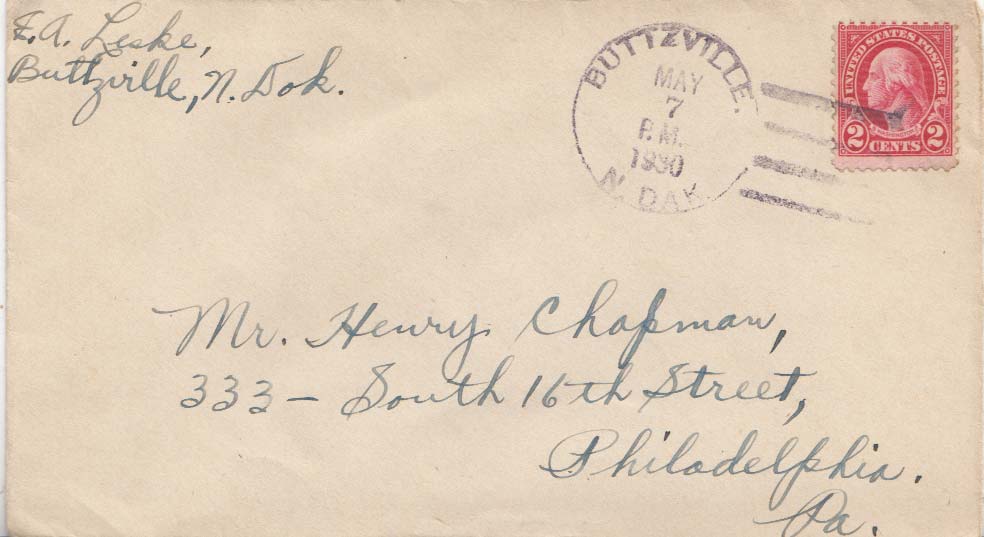 F. A. Leske,
Buttzville, N. Dak.
BUTTZVILLE.
MAY
7
P.M.
1930
N. DAK
UNITED STATES POSTAGE
WASHINGTON
2 CENTS 2
Mr. Henry Chapman,
333 – South 16th Street,
Philadelphia.
Pa.